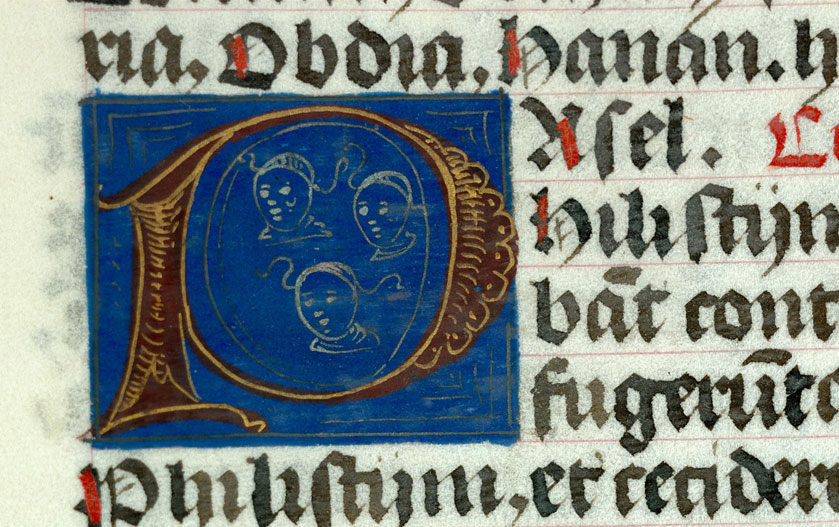 ria, Obdia, hanan. h
Asel. Ca
P
hilistijm
bāt cont
fugerūt
Philistijm, et cecider